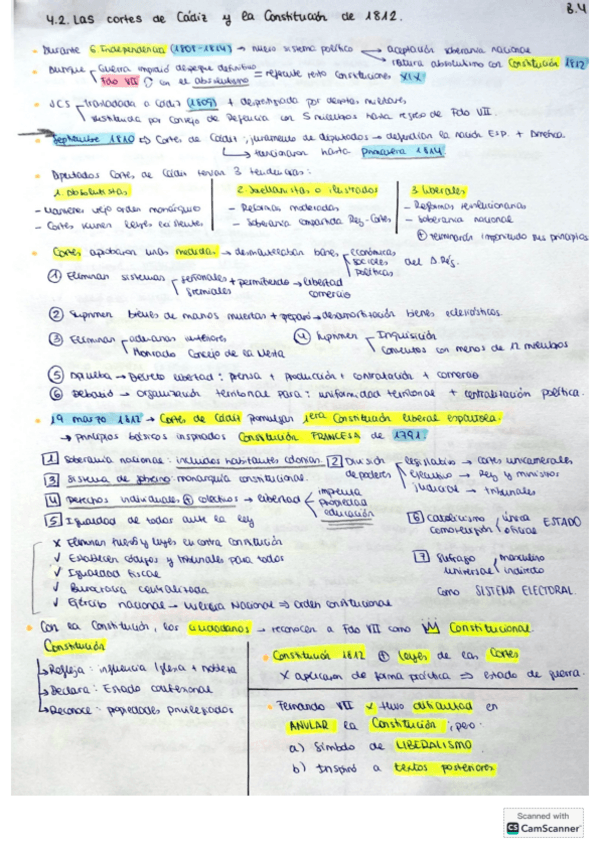 4.2. Las cortes de Cádiz y la Constitución de 1812.
B.4
• Durante G. Independencia (1808-1814) → nuevo sistema político → aceptación soberanía nacional
→ rotura absolutismo con Constitución 1812
• Aunque Guerra impidió despegue definitivo
Fdo VII en el absolutismo = referente resto constituciones XIX
• JCS trasladada a Cádiz (1809) + desprestigiada por derrotas militares
sustituida por Consejo de Regencia con 5 miembros hasta regreso de Fdo VII.
• Septiembre 1810 ⇒ Cortes de Cádiz: juramento de diputados → defendían la nación Esp. + América.
↳ funcionaron hasta primavera 1814.
• Diputados Cortes de Cádiz tenían 3 tendencias:
1. absolutistas
- Mantener viejo orden monárquico
- Cortes leyes existentes
2. Jovellanistas o ilustrados
- Reformas moderadas
- Soberanía compartida Rey-Cortes
3. liberales
- Reformas revolucionarias
- Soberanía nacional
⊕ terminarán imponiendo sus principios
• Cortes aprobaron unas medidas → desmantelaban bases económicas
sociales
políticas
del A. Rég.
① Eliminan sistemas señoriales
gremiales
+ permitiendo → libertad comercio
② Suprimen bienes de manos muertas + preparó → desamortización bienes eclesiásticos.
③ Eliminan aduanas interiores
Honrado Concejo de la Mesta
④ Suprimen Inquisición
Conventos con menos de 12 miembros
⑤ Aprueba → Decreto libertad: prensa + producción + contratación + comercio
⑥ Debatió → organización territorial para: uniformidad territorial + centralización política.
• 19 marzo 1812 → Cortes de Cádiz promulgan 1era Constitución liberal española.
→ Principios básicos inspirados Constitución FRANCESA de 1791.
1 Soberanía nacional: includos habitantes colonias.
2 División de poderes legislativo → cortes unicamerales
ejecutivo → Rey y ministros
judicial → tribunales
3 Sistema de gobierno: monarquía constitucional.
4 Derechos individuales ⊕ colectivos → libertad imprenta
propiedad
educación
5 Igualdad de todos ante la ley
6 Catolicismo única
oficial
ESTADO
x Eliminar fueros y leyes en contra constitución
✓ Establecer códigos y tribunales para todos
✓ Igualdad fiscal
✓ Burocracia centralizada
✓ Ejército nacional → Milicia Nacional ⇒ orden constitucional
7 Sufragio universal masculino
indirecto
como SISTEMA ELECTORAL.
• Con la Constitución, los ciudadanos → reconocen a Fdo VII como Constitucional.
Constitución
↳ Refleja: influencia Iglesia + nobleza
↳ Declara: Estado confesional
↳ Reconoce: propiedades privilegiados
• Constitución 1812 ⊕ leyes de las Cortes
x aplicación de forma práctica ⇒ estado de guerra.
• Fernando VII x tuvo dificultad en
ANULAR la Constitución, pero:
a) Símbolo de LIBERALISMO
b) Inspiró a textos posteriores
Scanned with
CS CamScanner